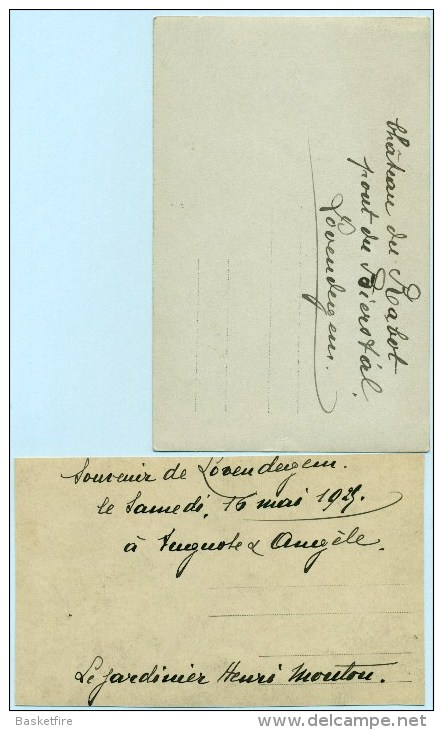 Château du Rabot
pont du Bierstal,
Lovendegem.
Souvenir de Lovendegem.
le Samedi, 16 mai 1925.
à Auguste & Angèle.
Le jardinier Henri Mouton.
Basketfire
www.delcampe.net